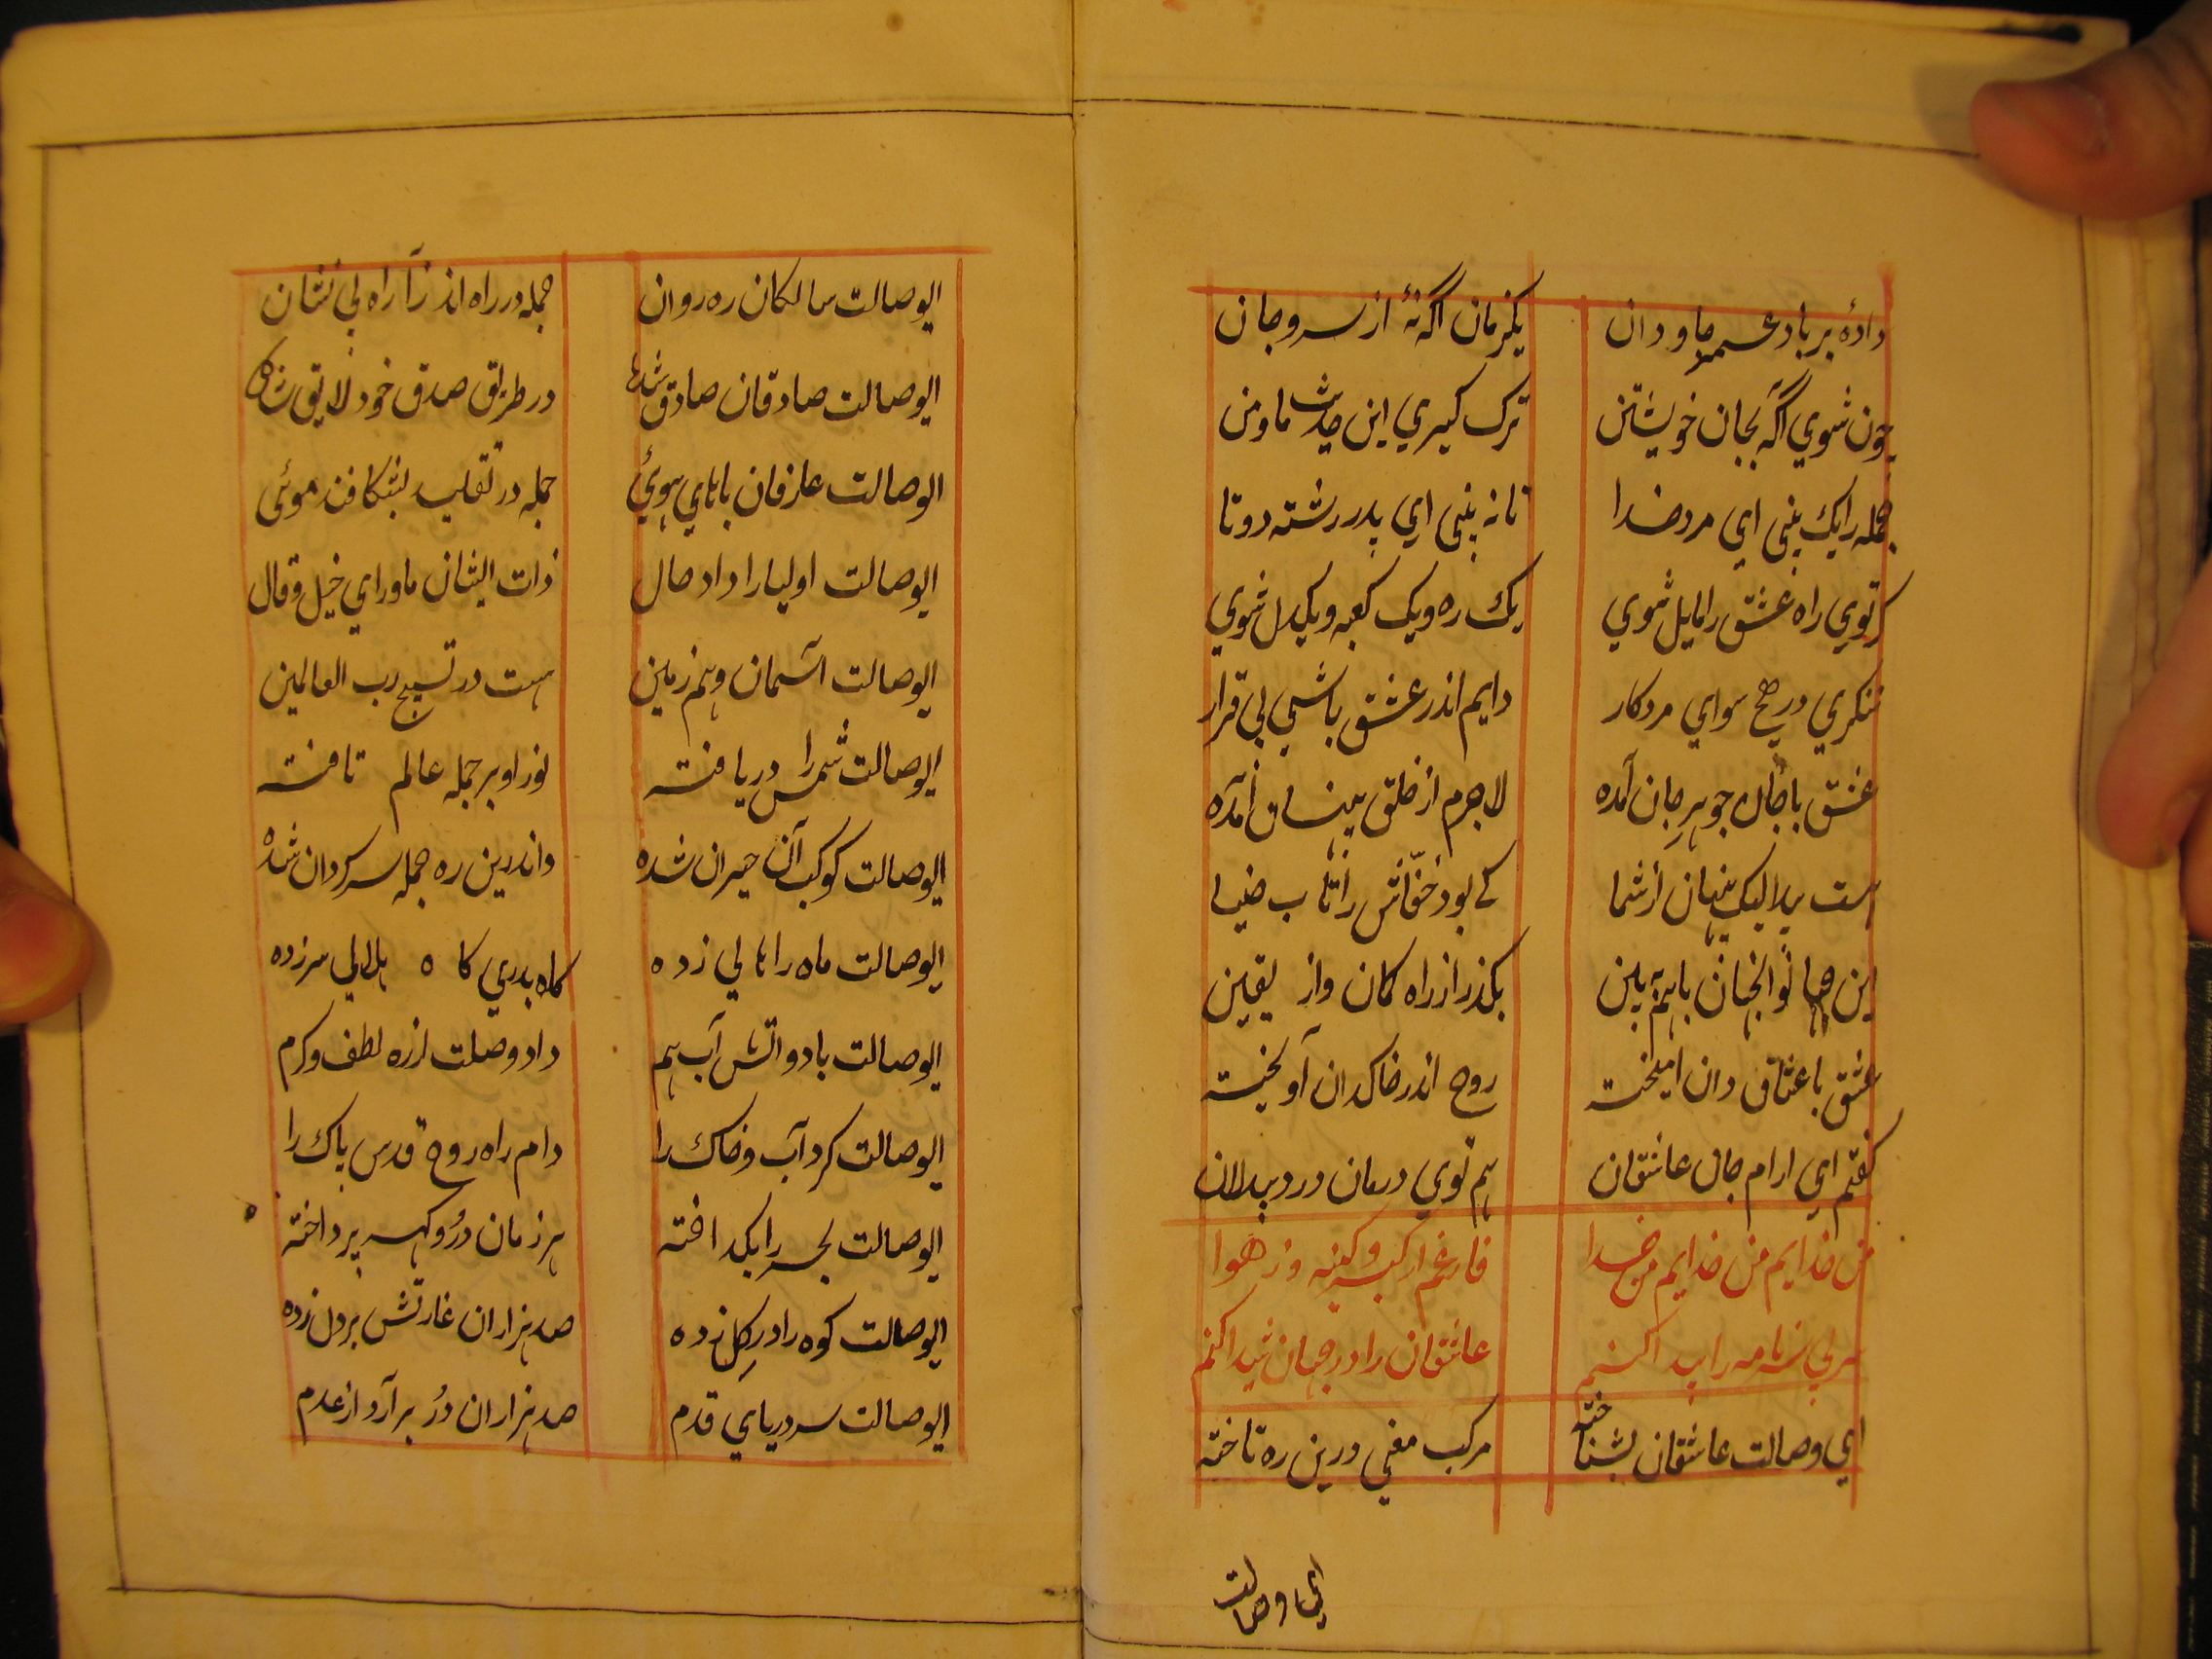 دادهٔ بر باد عمر جاودان یکزمان آگه نهٔ از سر و جان
چون شوي آگه بجان خویشتن ترک کیري این حدیث ما و من
جمله را یک بینی اي مرد خدا تا نه بینی اي پدر رشته دوتا
کر توي راه عشق را مایل شوي یک ره و یک کعبه و یکدل شوي
ننکري در هیچ سواي مرد کار دایم اندر عشق باشی بی قرار
عشق با جان جوهر جان آمده لا جرم از خلق پنهان آمده
هست پیدا لیک پنهان از شما کے بود خفّاش را تاب ضیا
این جهان و انجهان باهم به بین بکذر از راه کمان و از یقین
عشق با عشاق دان آمیخته روح اندر خاکدان آویخته
کفتم اي ارام جان عاشقان هم توي درمان درد بیدلان
من خدایم من خدایم من خدا فارغم از کبر و کینه وز هوا
سر بی سرنامه را پیدا کنم عاشقان را در جهان شیدا کنم
اي وصالت عاشقان بشناخته مرکب معنی درین ره تاخته
اي وصالت
ایوصالت سالکان ره روان جمله در راه اند زآ راه بی نشان
ایوصالت صادقان صادق شدها در طریق صدق خود لایق
ایوصالت عارفان با هاي هوئي جمله در تقلیب بشکافند موئی
ایوصالت اولیا را داد حال ذات ایشان ماوراي خیل و قال
ایوصالت آسمان و هم زمین هست در تسبیح رب العالمین
ایوصالت شمس را دریافته نور او بر جمله عالم تافته
ایوصالت کوکب آن حیران شده واندرین ره جمله سرکردان شده
ایوصالت ماه را هالی زده کاه بدري کا ه هلالی سر زده
ایوصالت باد و آتش آب هم داد وصلت از ره لطف و کرم
ایوصالت کرد آب و خاک را دام راه روح قدس پاک را
ایوصالت بحر را بکداخته هر زمان درّ و کهر پرداخته
ایوصالت کوه را در کل زده صد هزاران غارتش بر دل زده
ایوصالت سر دریاي قدم صد هزاران دُر برآرد از عدم